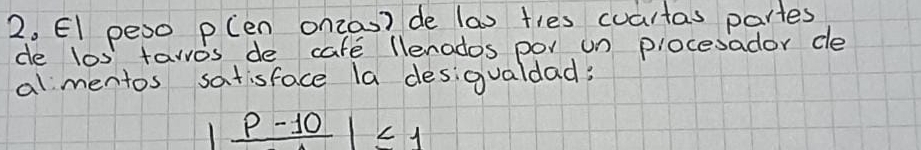 2. El peso p (en onzas) de las tres cuartas partes
de los tarros de café llenados por un procesador de
alimentos satisface la desigualdad:
| P - 10 | ≤ 1